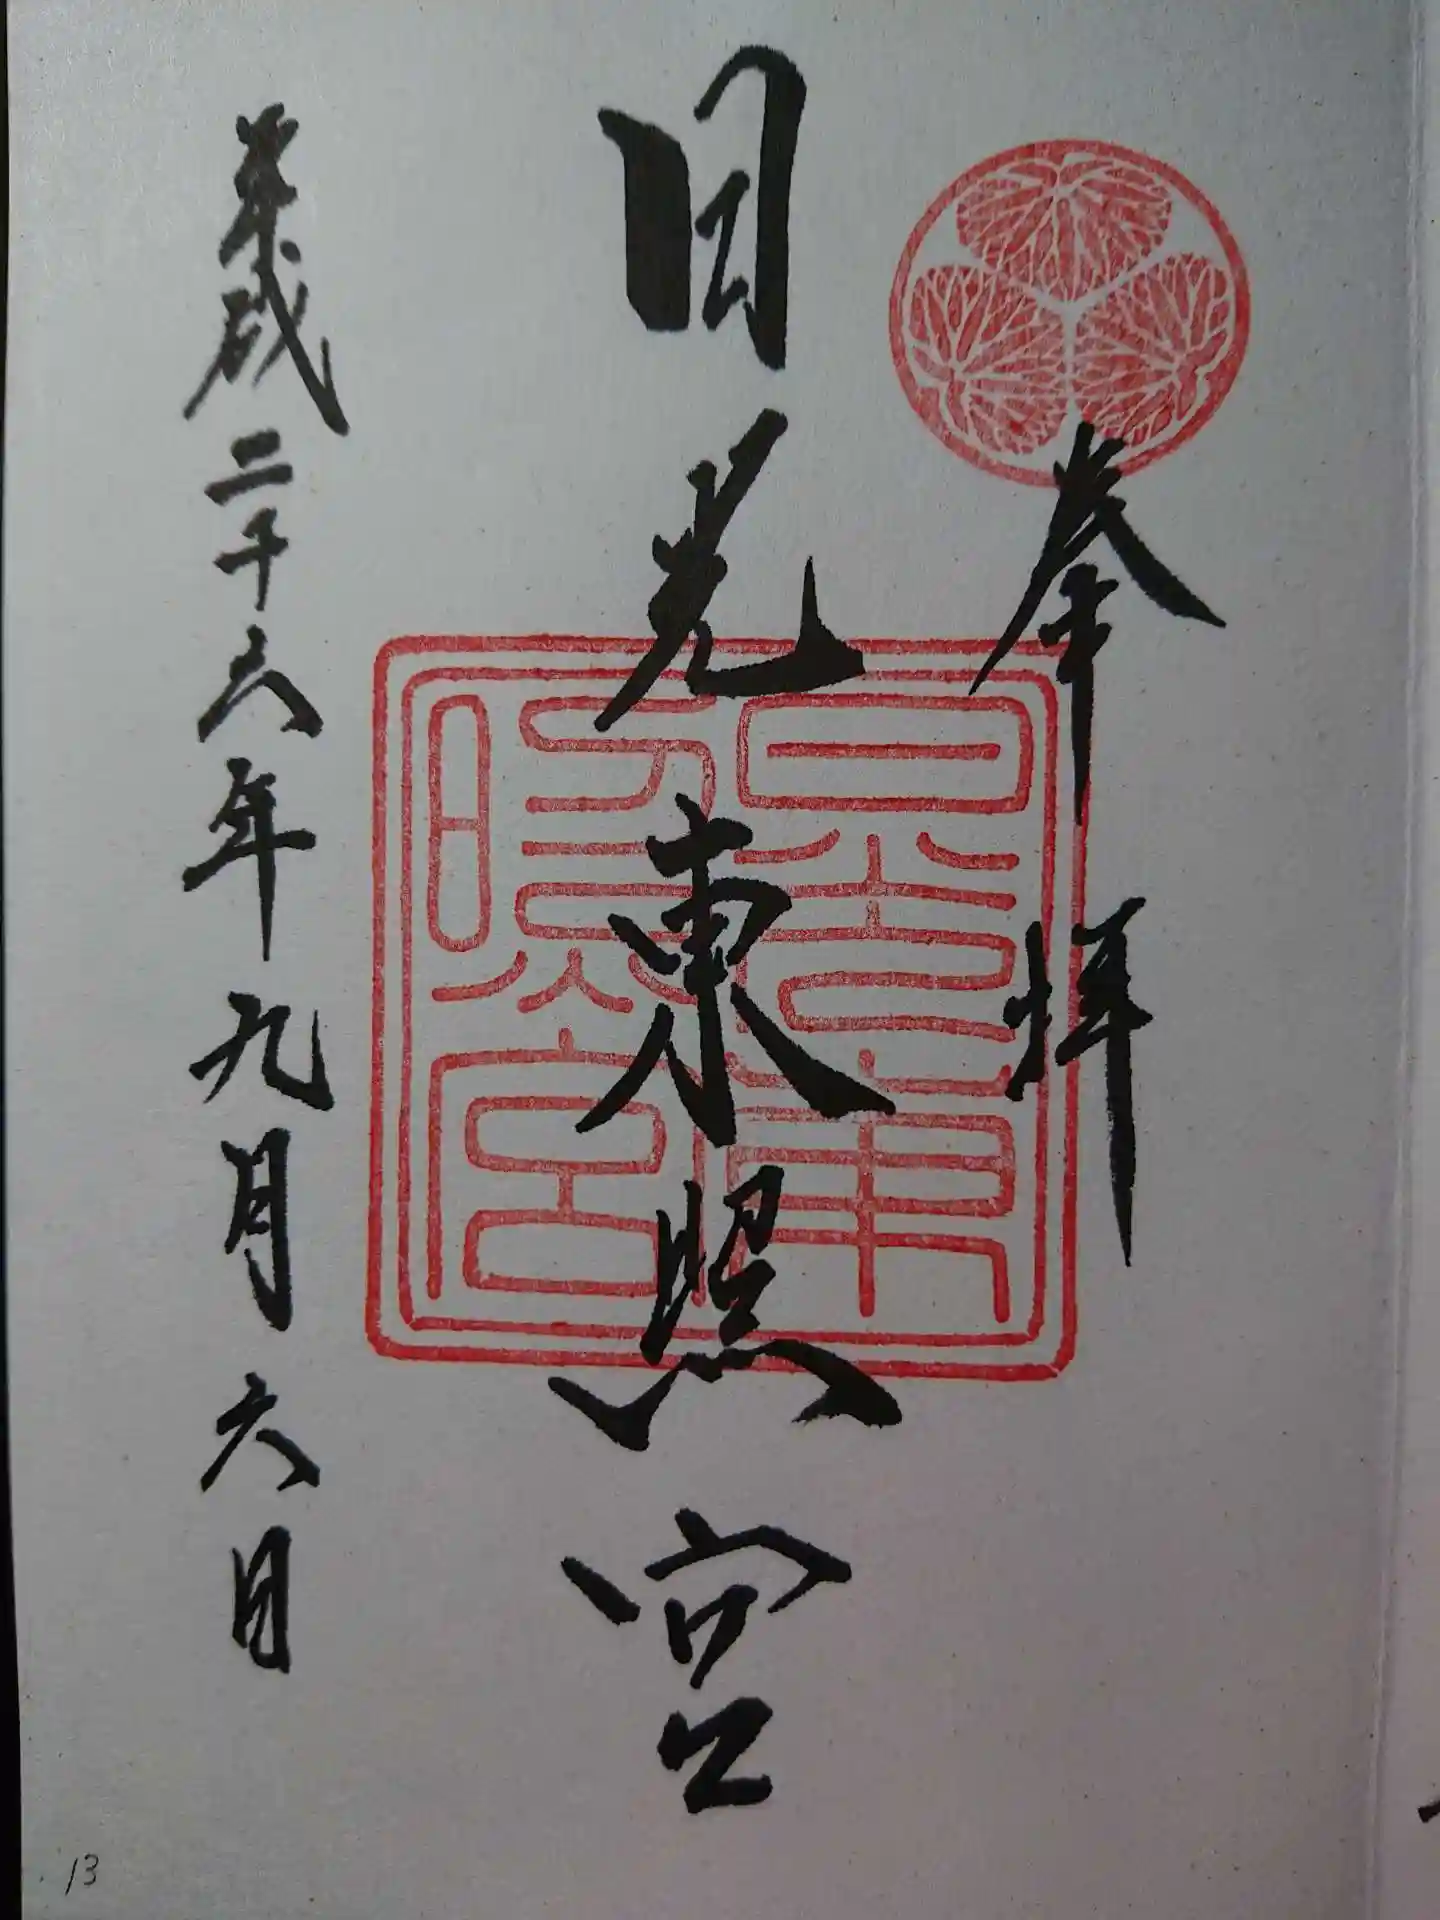 奉拝
日光東照宮
日光東照宮
平成二十六年九月六日
13